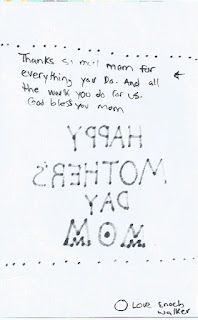 Thanks so much mom for
everything you Do. And all
the work you do for us.
God bless you mom
HAPPY
MOTHER'S
DAY
M.O.M
Love Enoch
Walker